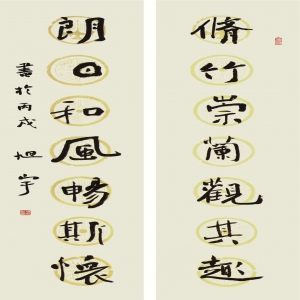 脩竹崇蘭觀其趣
朗日和風暢斯懷
書於丙戌 旭宇